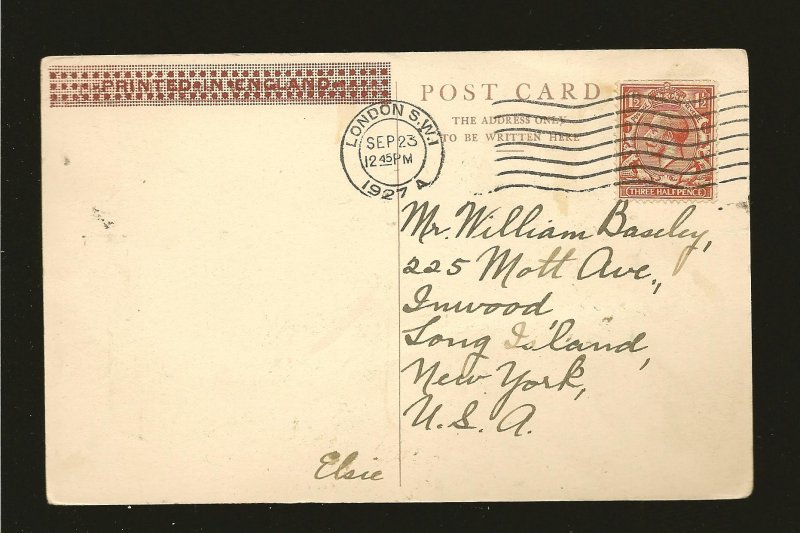 PRINTED IN ENGLAND
POST CARD
THE ADDRESS ONLY
TO BE WRITTEN HERE
LONDON S.W.1
SEP 23
12 45 PM
1927 A
1½ 1½
THREE HALFPENCE
Mr. William Baseley,
225 Mott Ave.,
Inwood,
Long Island,
New York,
U.S.A.
Elsie